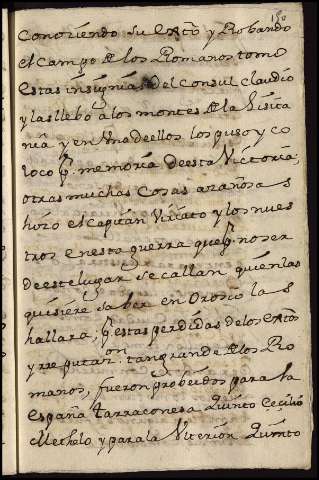 150
Concriendo su exto y Robando
el campo de los Romanos tomo
estas insignias del consul claudio
y las llebo a los montes de la Lusita
nia y en Uno de ellos los puso y co
loco pr. memoria de esta Victoria;
otras muchas cosas azañosas
hizo el capitan Viriato y los nues
tros en esta guerra que pr no ser
de este lugar se callan quien las
quisiere saber en Orosio las
hallara, pr estas perdidas de los extos
y rreputasion tan grande de los Ro
manos, fueron probeidos para la
España Tarraconesa Quinto Cecilio
Methelo y para la Ulterior Quinto